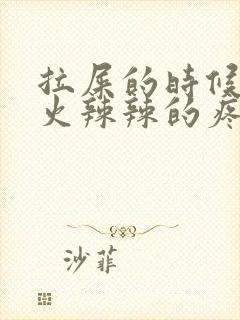 拉屎的时候
火辣辣的疼
沙菲